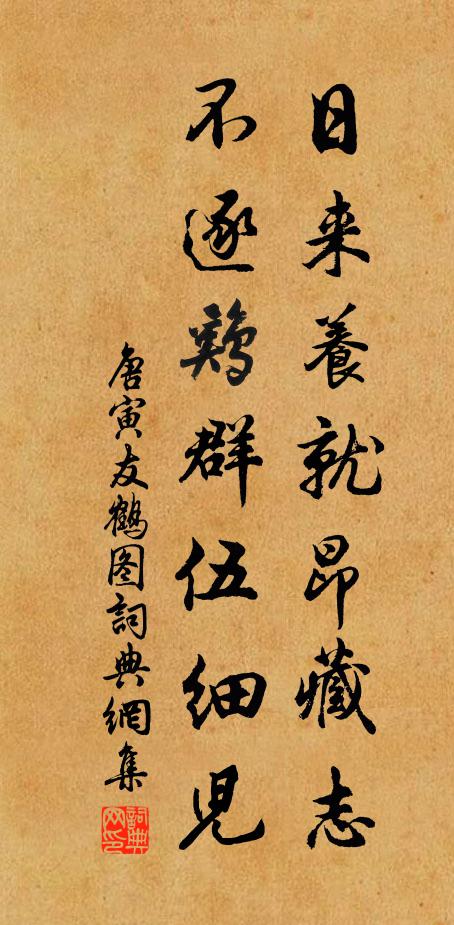 日来養就昂藏志
不逐鷄群伍細児
唐寅友鶴图詞典網集
詞典网印